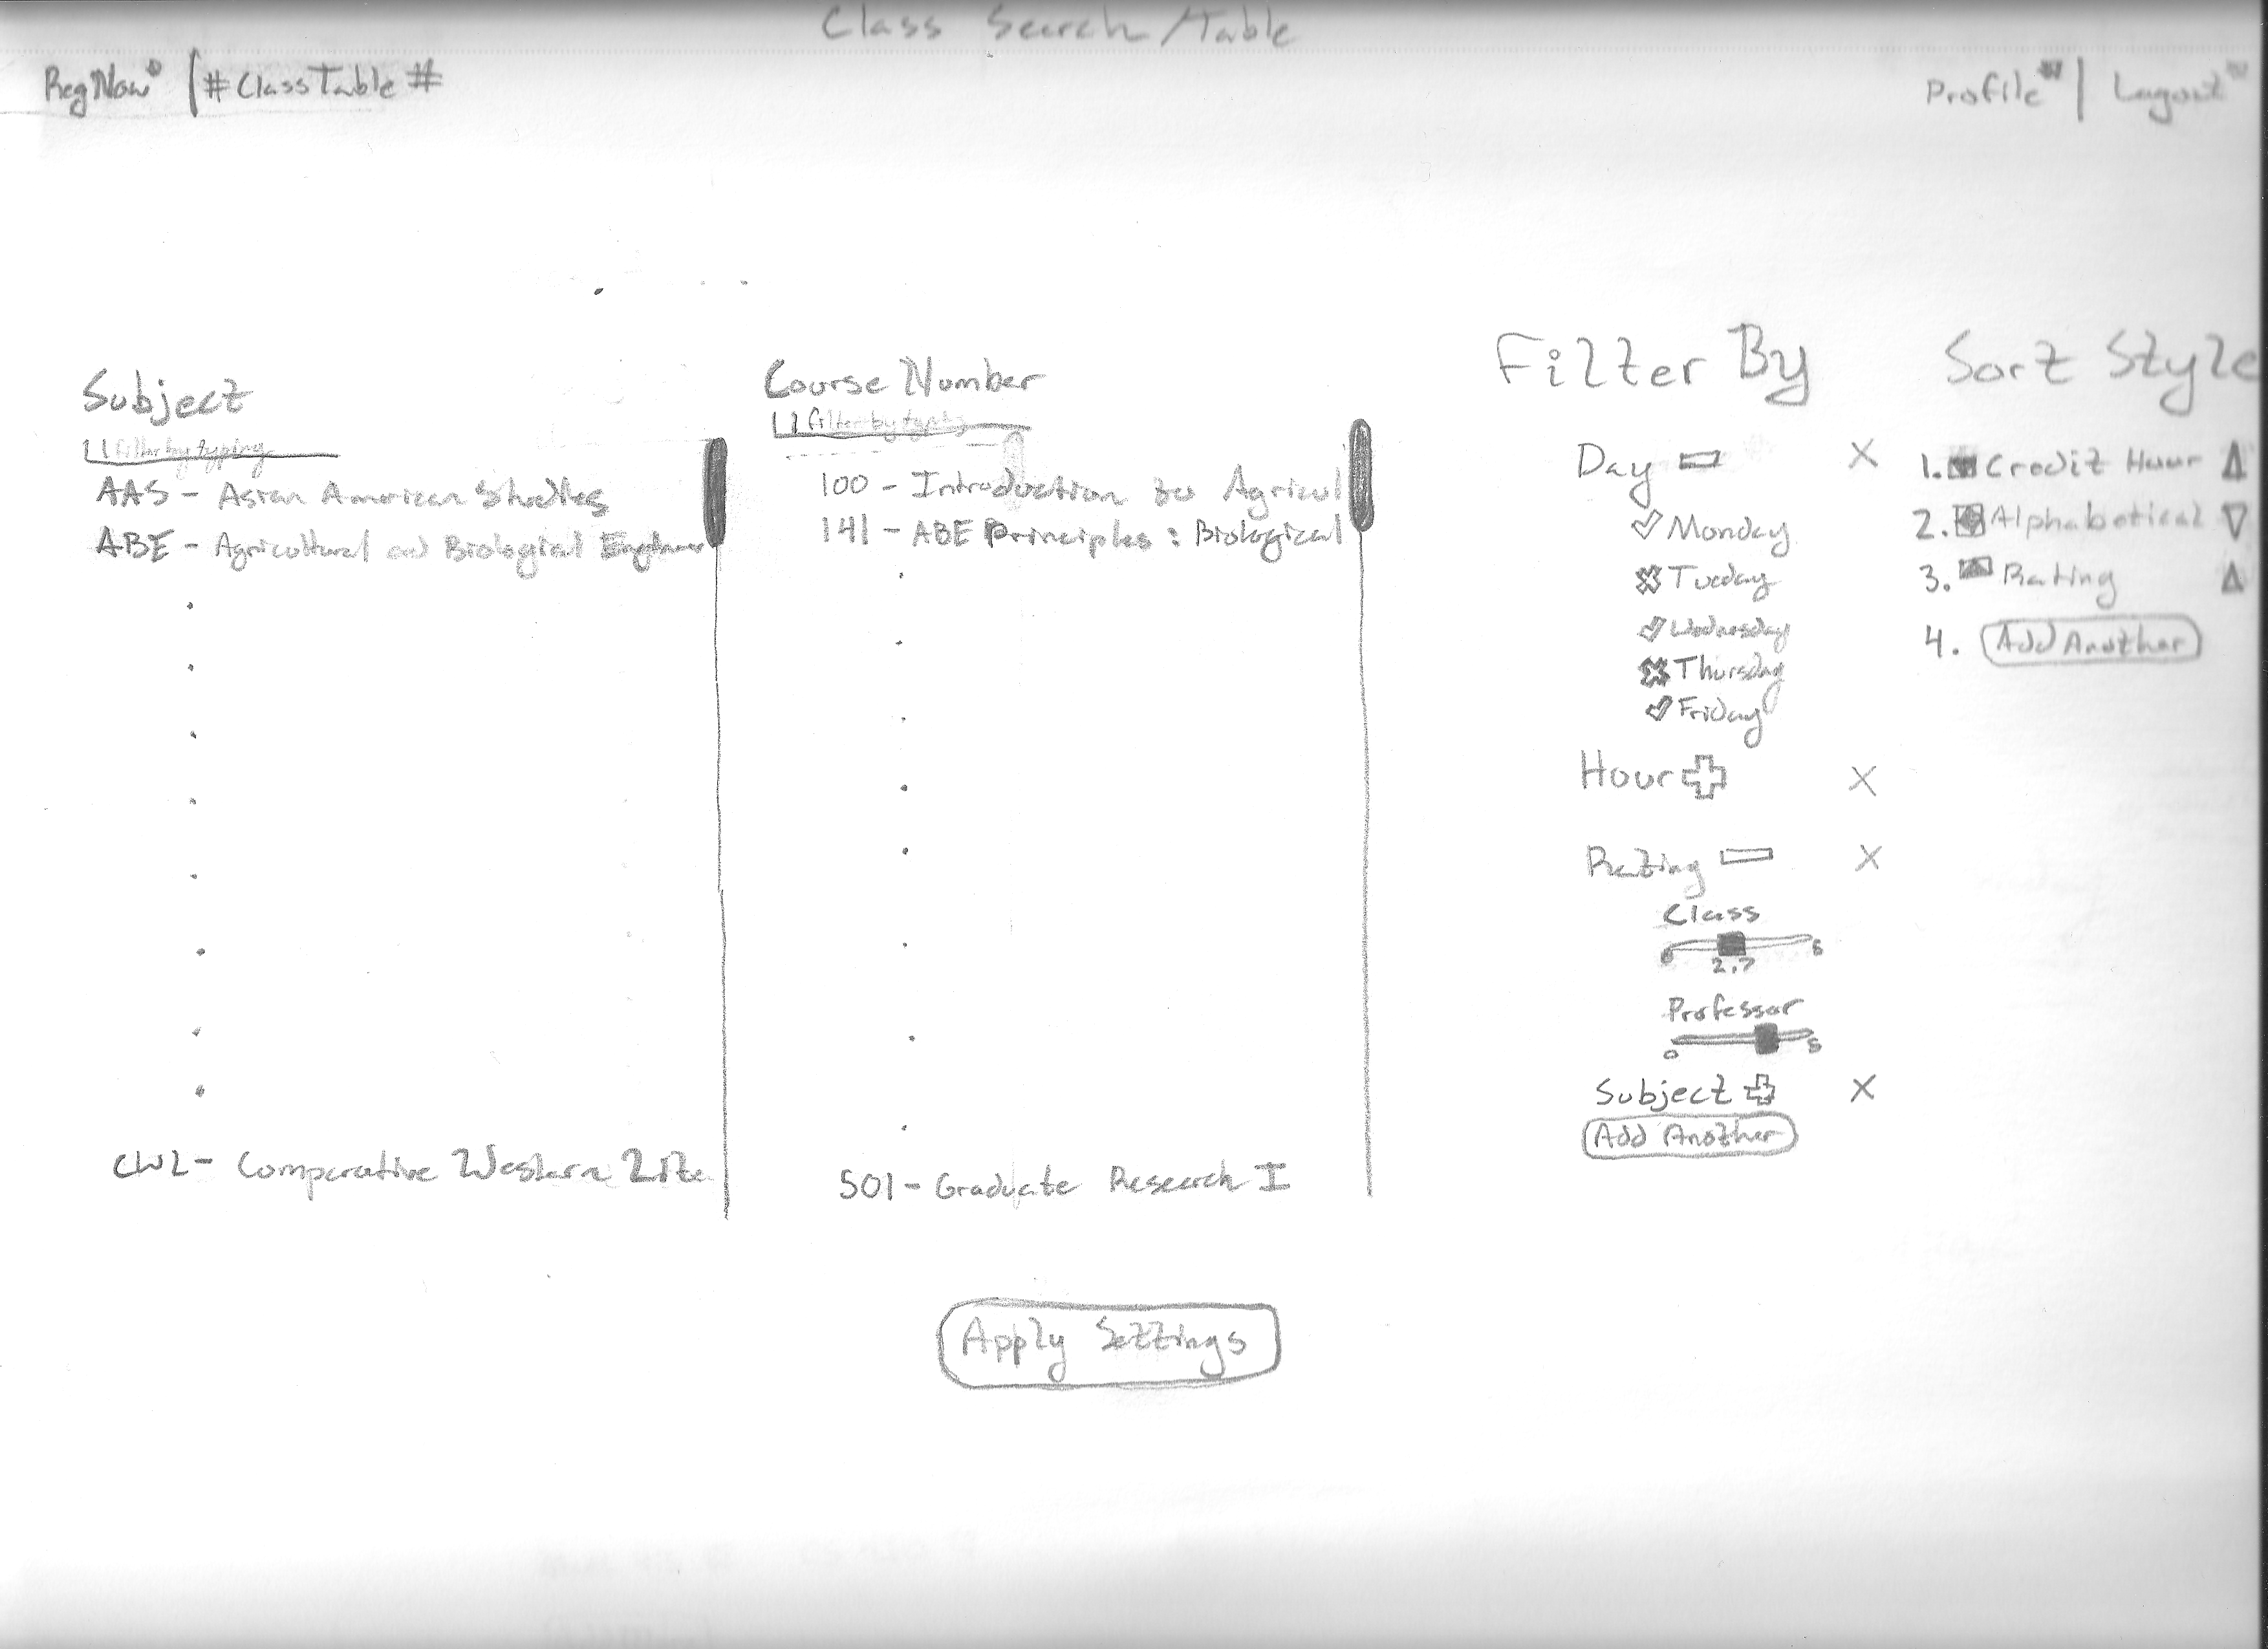 Class Search/Table
RegNow | #ClassTable#
Profile | Logout
Subject
filter by typing
AAS - Asian American Studies
ABE - Agricultural and Biological Engineer
CWL - Comparative Western Lite
Course Number
filter by typing
100 - Introduction to Agricul
141 - ABE Principles: Biological
501 - Graduate Research I
Filter By
Day X
Monday
Tuesday
Wednesday
Thursday
Friday
Hour X
Rating X
Class
0 5
2.7
Professor
0 5
Subject X
Add Another
Sort Style
1. Credit Hour
2. Alphabetical
3. Rating
4. Add Another
Apply Settings